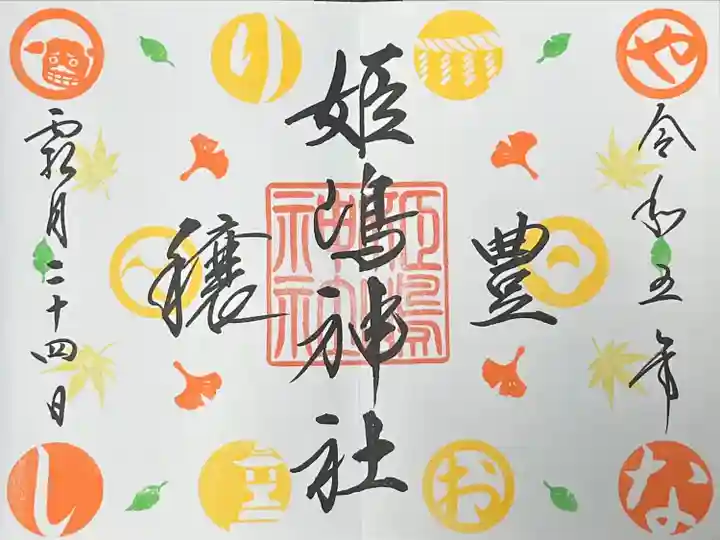 や
令和五年
な
豊
お
姫嶋神社
姫嶋
神社
り
穣
霜月二十四日
し